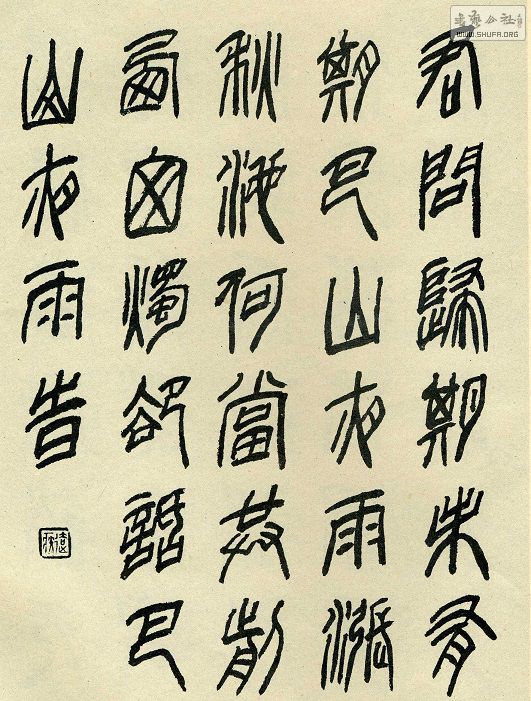 君問歸期未有
期巴山夜雨漲
秋池何當共剪
西窗燭卻話巴
山夜雨時
書藝公社
WWW.SHUFA.ORG